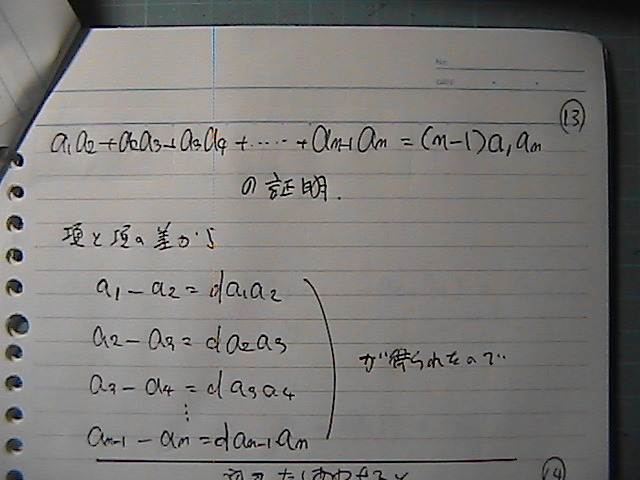 No.
DATE
⑬
a₁a₂+a₂a₃+a₃a₄+·····+aₙ₋₁aₙ=(n-1)a₁aₙ
の証明.
項と項の差から
a₁-a₂=da₁a₂
a₂-a₃=da₂a₃
a₃-a₄=da₃a₄
⋮
aₙ₋₁-aₙ=daₙ₋₁aₙ
が得られたので
⑭